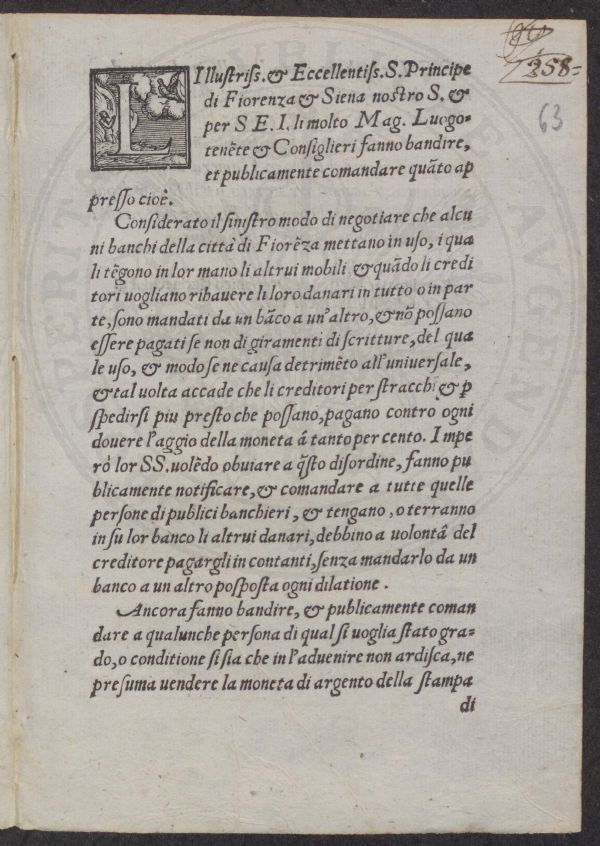 258-
63
LIllustriss. & Eccellentiss. S. Principe
di Fiorenza & Siena nostro S. &
per S E. I. li molto Mag. Luogo=
tenẽte & Consiglieri fanno bandire,
et publicamente comandare quãto ap
presso cioê.
Considerato il sinistro modo di negotiare che alcu
ni banchi della città di Fiorẽza mettano in uso, i qua
li tẽgono in lor mano li altrui mobili & quãdo li credi
tori uogliano rihauere li loro danari in tutto o in par
te, sono mandati da un bãco a un'altro, & nõ possano
essere pagati se non di giramenti di scritture, del qua
le uso, & modo se ne causa detrimẽto all'uniuersale,
& tal uolta accade che li creditori per stracchi & ꝑ
spedirsi piu presto che possano, pagano contro ogni
douere l'aggio della moneta â tanto per cento. Impe
rò lor SS. uolẽdo obuiare a q̃sto disordine, fanno pu
blicamente notificare, & comandare a tutte quelle
persone di publici banchieri, & tengano, o terranno
in su lor banco li altrui danari, debbino a uolontâ del
creditore pagargli in contanti, senza mandarlo da un
banco a un altro posposta ogni dilatione.
Ancora fanno bandire, & publicamente coman
dare a qualunche persona di qual si uoglia stato gra=
do, o conditione si sia che in l'aduenire non ardisca, ne
presuma uendere la moneta di argento della stampa
di